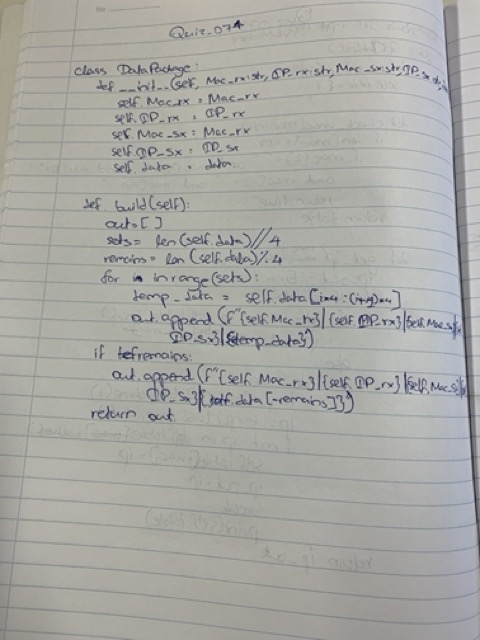 Quiz_074
class DataPackage:
def __init__(self, Mac_rx:str, IP_rx:str, Mac_sx:str, IP_sx:str,
self.Mac_rx = Mac_rx
self.IP_rx = IP_rx
self.Mac_sx = Mac_rx
self.IP_sx = IP_sx
self.data = data
def build(self):
out=[]
sets= len(self.data)//4
remains= len(self.data)%4
for in range(sets):
temp_data = self.data[i*4:(i+1)*4]
out.append(f"{self.Mac_rx}|{self.IP_rx}|{self.Mac_sx}|
IP_sx}|{temp_data}")
if remains:
out.append(f"{self.Mac_rx}|{self.IP_rx}|{self.Mac_s
IP_sx}|{self.data[-remains]}")
return out